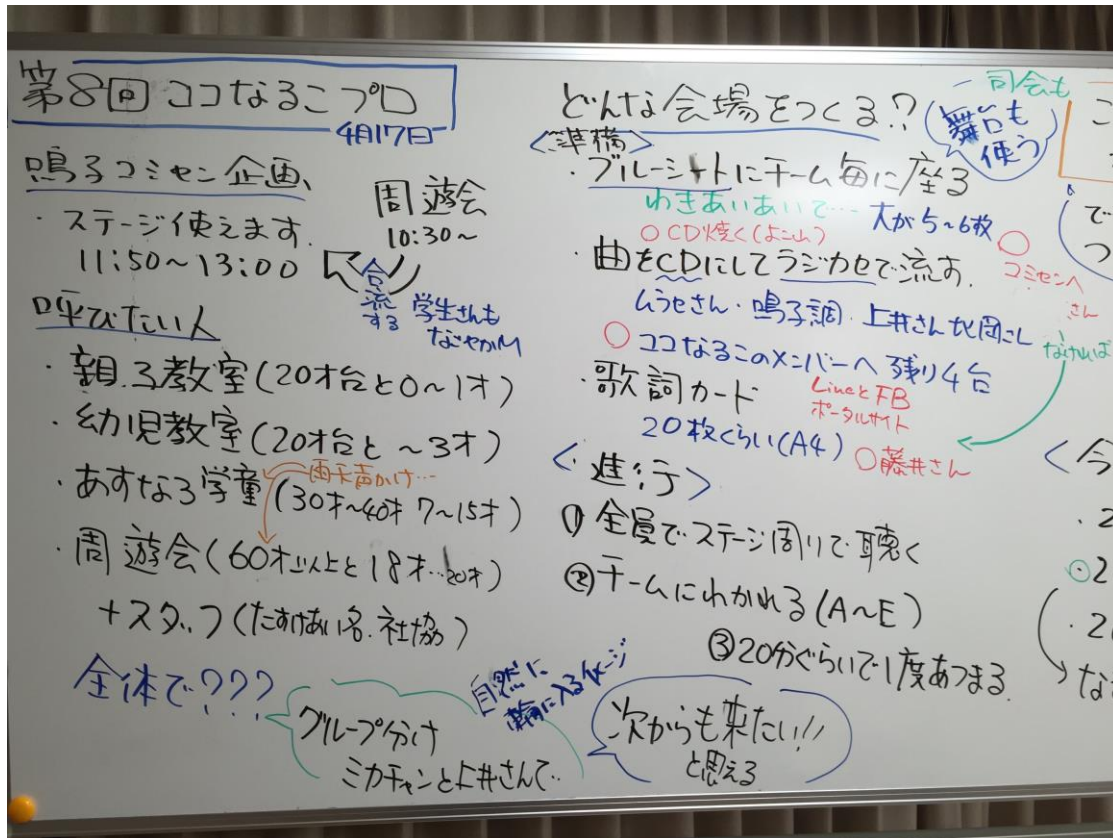 第8回ココなるこプロ
4月17日
鳴子コミセン企画
・ステージ使えます.
11:50～13:00
周遊会
10:30～
合流する
学生さんも
なごやかJr
呼びたい人
・親子教室(20才台と0～1才)
・幼児教室(20才台と～3才)
雨天声かけ…
・あすなろ学童(30才～40才 7～15才)
・周遊会(60才以上と18才…20才)
＋スタッフ(たすけあい名.社協)
全体で???
グループ分け
ミカチャンと上井さんで..
自然に
輪に入るイメージ
次からも来たい!!
と思える
どんな会場をつくる?
司会も
舞台も
使う
<準備>
・ブルーシートにチーム毎に座る
わきあいあいで…
大が5～6枚
○CD焼く(よこ山)
○
コミセンへ
さん
・曲をCDにしてラジカセで流す.
ムラセさん・鳴子調・上井さん
なければ
○ココなるこのメンバーへ 残り4台
・歌詞カード
LineとFB
ポータルサイト
20枚くらい(A4)
○藤井さん
<進行>
①全員でステージ周りで聴く
②チームにわかれる(A～E)
③20分ぐらいで1度あつまる.
こ
で
つ
<今
・2
○2
・2
な